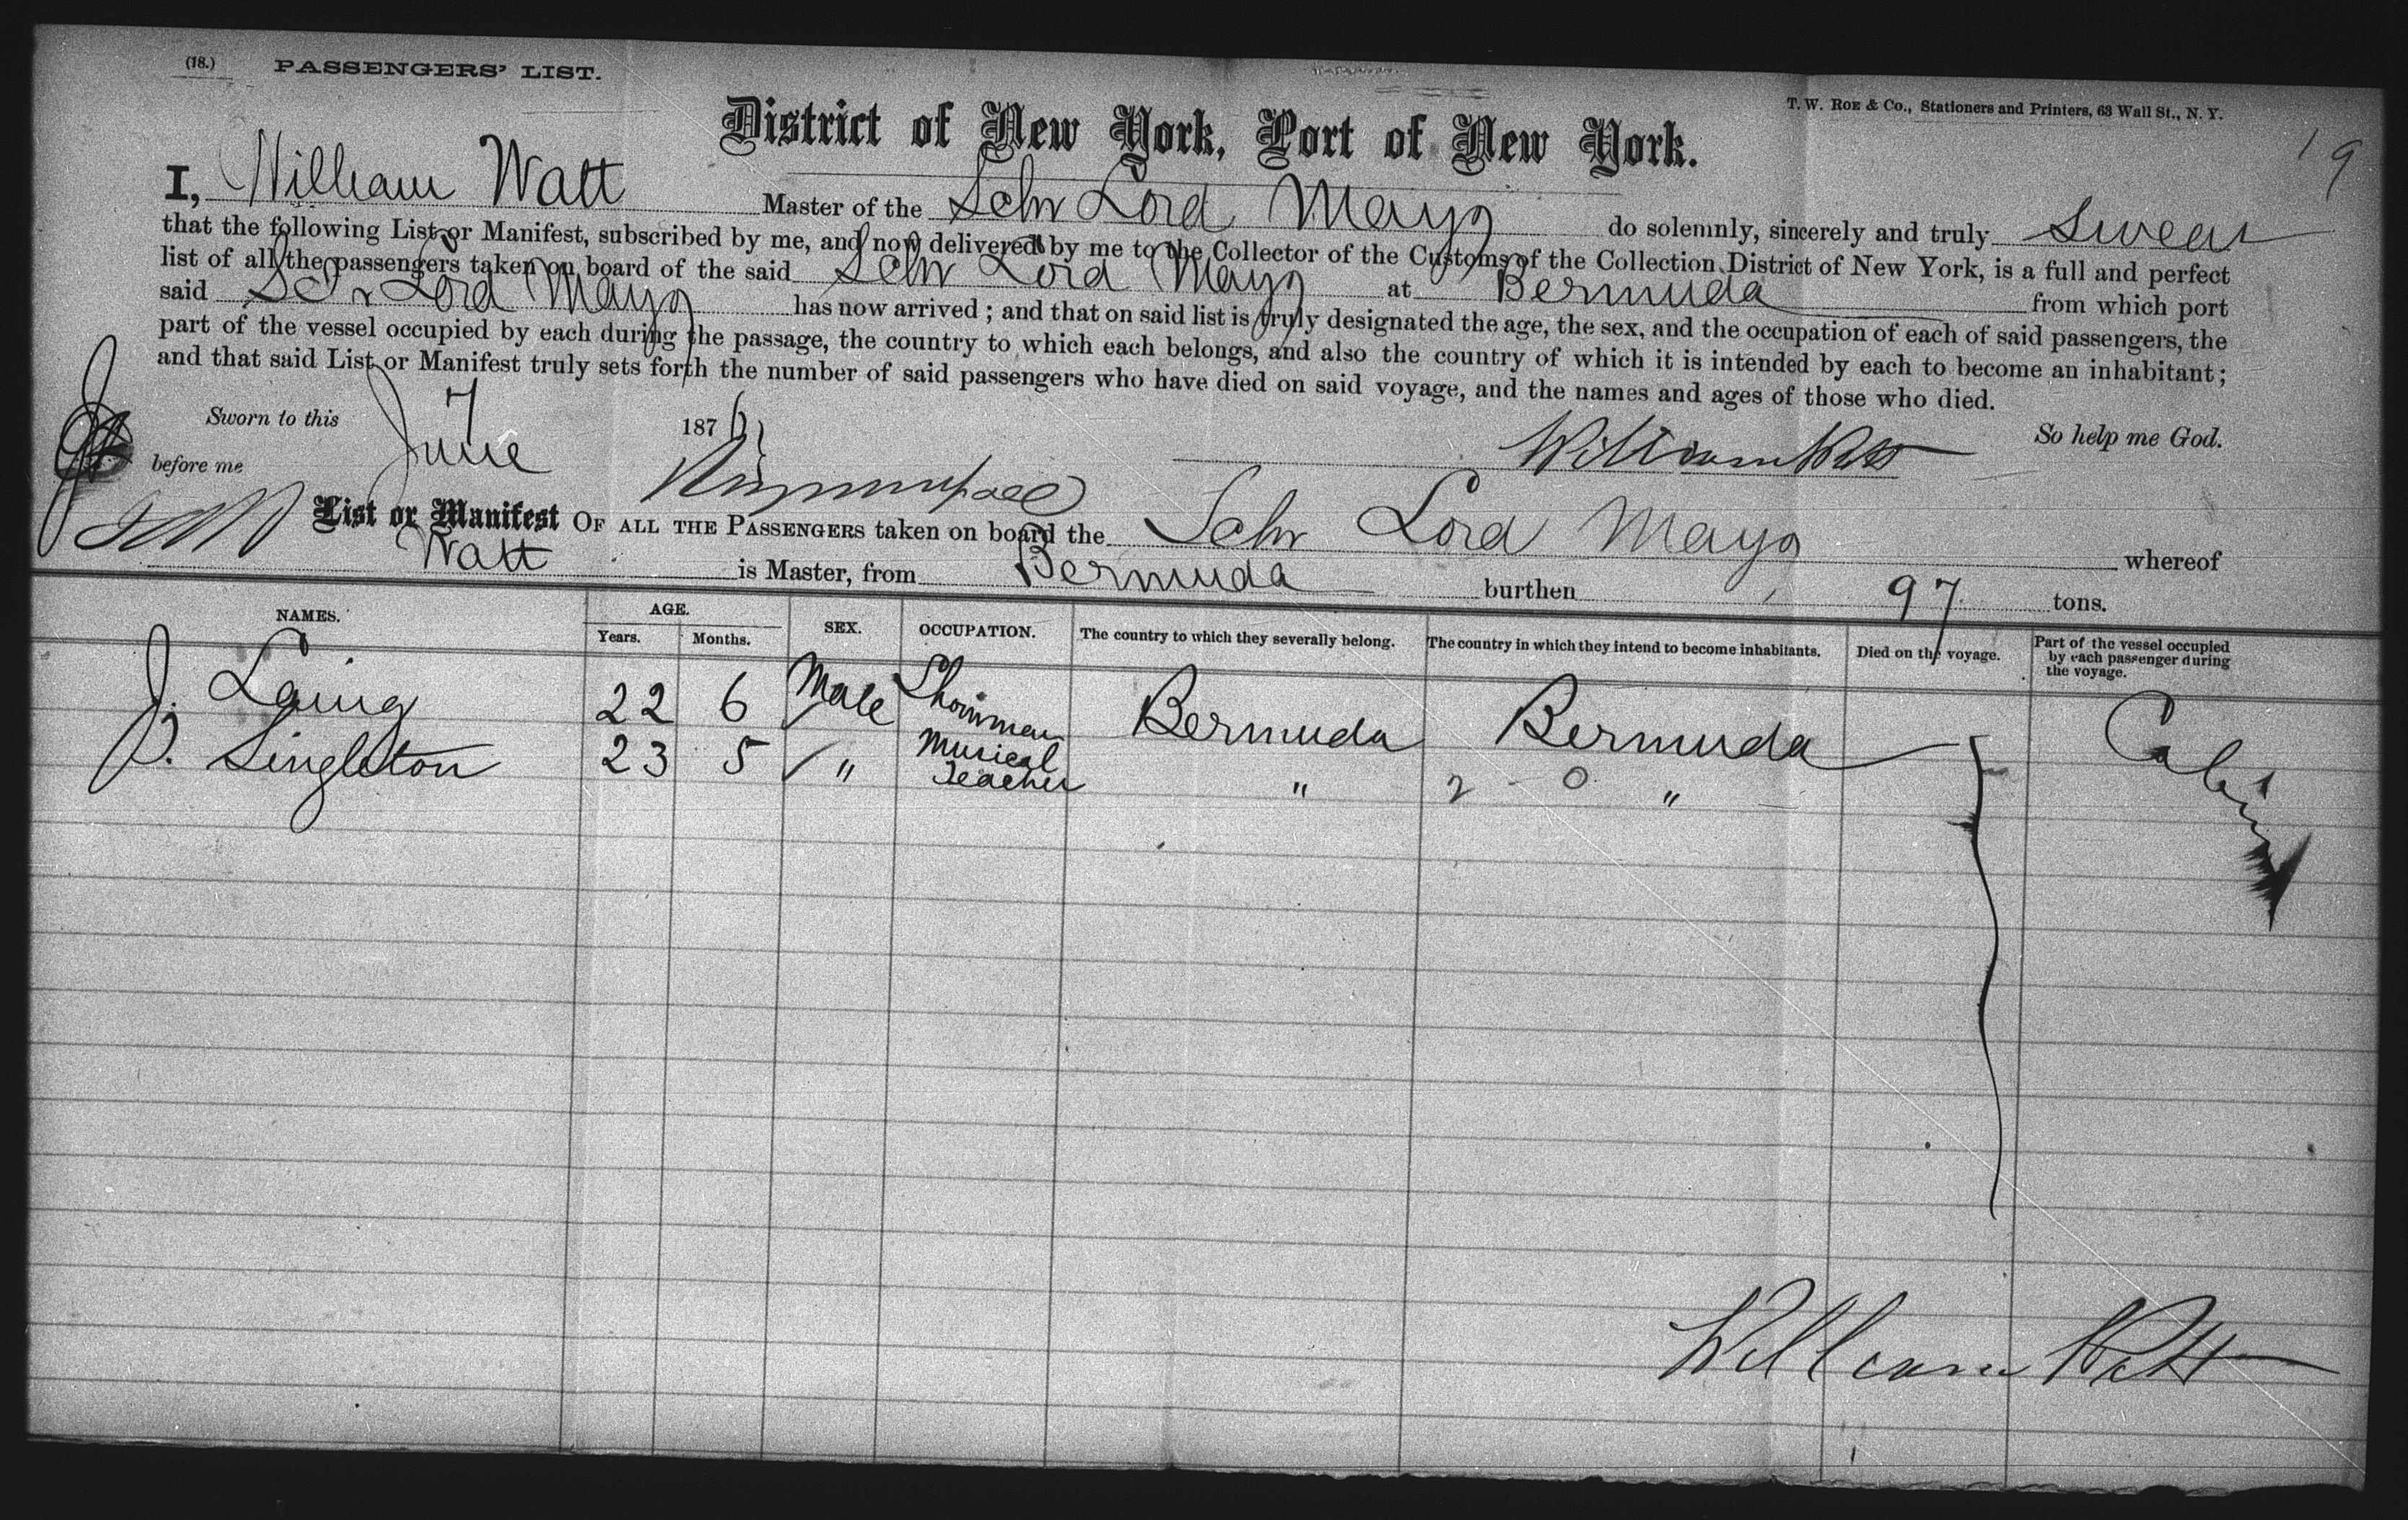 (18.) PASSENGERS' LIST.
T. W. ROE & Co., Stationers and Printers, 63 Wall St., N. Y.
District of New York, Port of New York.
19
I, William Watt Master of the Schr Lord Mayo do solemnly, sincerely and truly Swear
that the following List or Manifest, subscribed by me, and now delivered by me to the Collector of the Customs of the Collection District of New York, is a full and perfect
list of all the passengers taken on board of the said Schr Lord Mayo at Bermuda from which port
said Schr Lord Mayo has now arrived ; and that on said list is truly designated the age, the sex, and the occupation of each of said passengers, the
part of the vessel occupied by each during the passage, the country to which each belongs, and also the country of which it is intended by each to become an inhabitant ;
and that said List or Manifest truly sets forth the number of said passengers who have died on said voyage, and the names and ages of those who died.
Sworn to this 7 1876 So help me God.
before me June William Watt
List or Manifest OF ALL THE PASSENGERS taken on board the Schr Lord Mayo whereof
Watt is Master, from Bermuda burthen 97 tons.
NAMES. AGE. Years. Months. SEX. OCCUPATION. The country to which they severally belong. The country in which they intend to become inhabitants. Died on the voyage. Part of the vessel occupied by each passenger during the voyage.
J. Laing 22 6 Male Showman Bermuda Bermuda Cabin
J. Singleton 23 5 " Musical Teacher " 2 - 0 "
William Watt